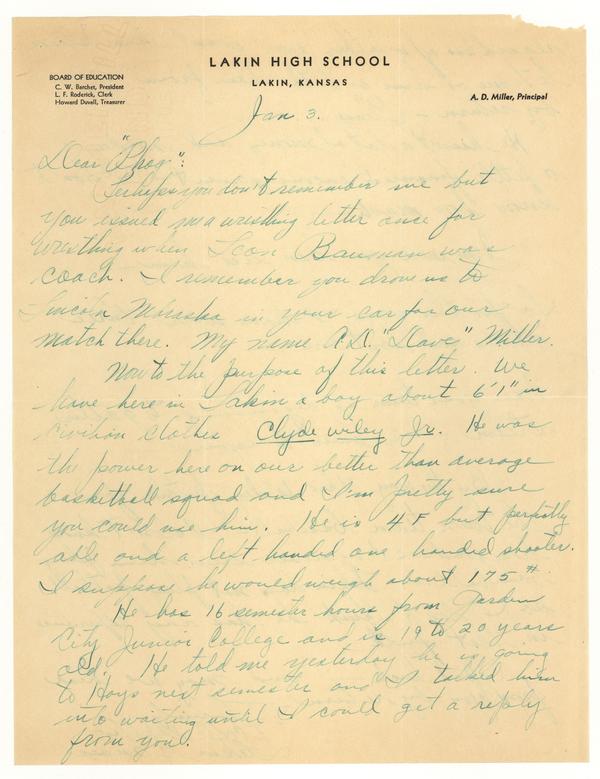 LAKIN HIGH SCHOOL
LAKIN, KANSAS
BOARD OF EDUCATION
C. W. Barchet, President
L. F. Roderick, Clerk
Howard Duvall, Treasurer
A. D. Miller, Principal
Jan 3.
Dear "Phog":
Perhaps you don't remember me but
you issued me a wrestling letter once for
wrestling when Leon Bauman was
coach. I remember you drove us to
Lincoln Nebraska in your car for our
match there. My name A.D. "Dave" Miller.
Now to the purpose of this letter. We
have here in Lakin a boy about 6'1" in
civilian clothes Clyde Wiley Jr. He was
the power here on our better than average
basketball squad and I'm pretty sure
you could use him. He is 4F but perfectly
able and a left handed one handed shooter.
I suppose he would weigh about 175#.
He has 16 semester hours from Garden
City Junior College and is 19 to 20 years
old. He told me yesterday he is going
to Hays next semester and I talked him
into waiting until I could get a reply
from you.